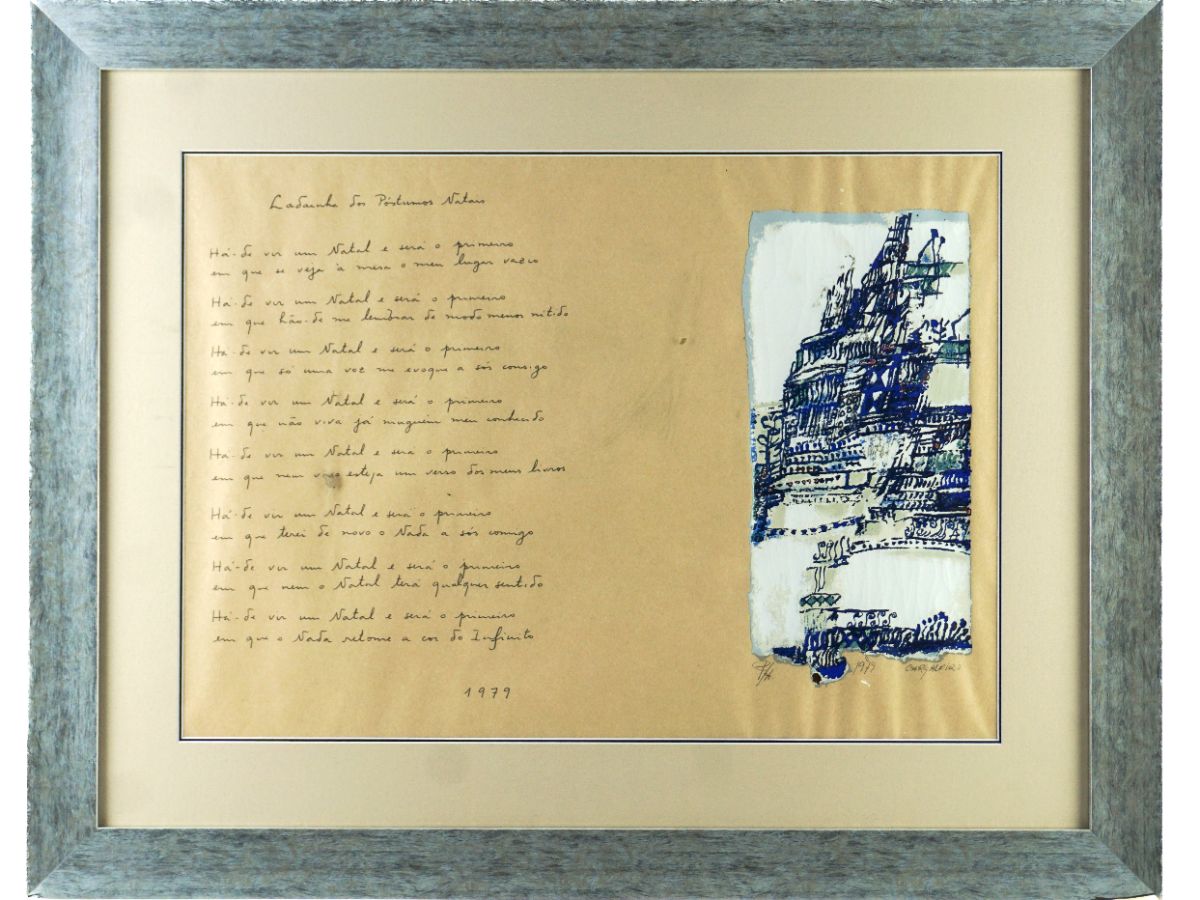 Ladainha dos Póstumos Natais
Há-de vir um Natal e será o primeiro
em que se veja à mesa o meu lugar vazio
Há-de vir um Natal e será o primeiro
em que hão-de me lembrar de modo menos nítido
Há-de vir um Natal e será o primeiro
em que só uma voz me evoque a sós consigo
Há-de vir um Natal e será o primeiro
em que não viva já ninguém meu conhecido
Há-de vir um Natal e será o primeiro
em que nem vivo esteja um verso dos meus livros
Há-de vir um Natal e será o primeiro
em que terei de novo o Nada a sós comigo
Há-de vir um Natal e será o primeiro
em que nem o Natal terá qualquer sentido
Há-de vir um Natal e será o primeiro
em que o Nada retome a cor do Infinito
1979
1979 CARGALEIRO